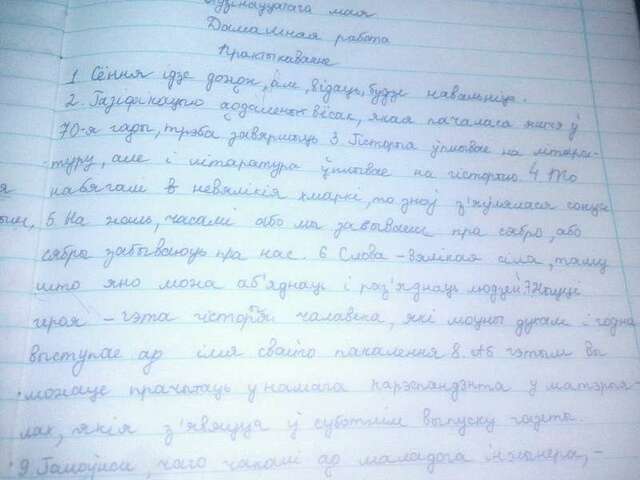 Адзінаццатага мая
Дамашняя работа
Практыкаванне
1 Сёння ідзе дождж, ім, відаць, будзе навальніца.
2. Газіфікацыю аддаленых вёсак, якая пачалася яшчэ ў
70-я гады, трэба завяршыць 3. Гісторыя ўплывае на літара-
туру, але і літаратура ўплывае на гісторыю. 4. То
навягалі невялікія хмаркі, то зноў з'яўлялася сонца
я
5 На жаль, часамі або мы забываем пра сяброў, або
сябры забываюць пра нас. 6 Слова - вялікая сіла, таму
што яно можа аб'яднаць і раз'яднаць людзей. 7
героя - гэта гісторыя чалавека, які моцны духам і годна
выступае ад імя свайго пакалення 8. Аб гэтым вы
можаце прачытаць у нашага карэспандэнта у матэрыя
лах, якія з'явяцца ў суботнім выпуску газеты.
9 чаго чакалі ад маладога інжынера, -